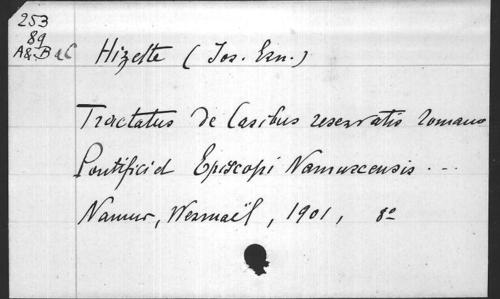 253
89
A & B & C
Hizette (Jos. Ern.)
Tractatus de Casibus reservatis romano
Pontifici et Episcopi Namurcensis ...
Namur, Wesmaël, 1901, 8º